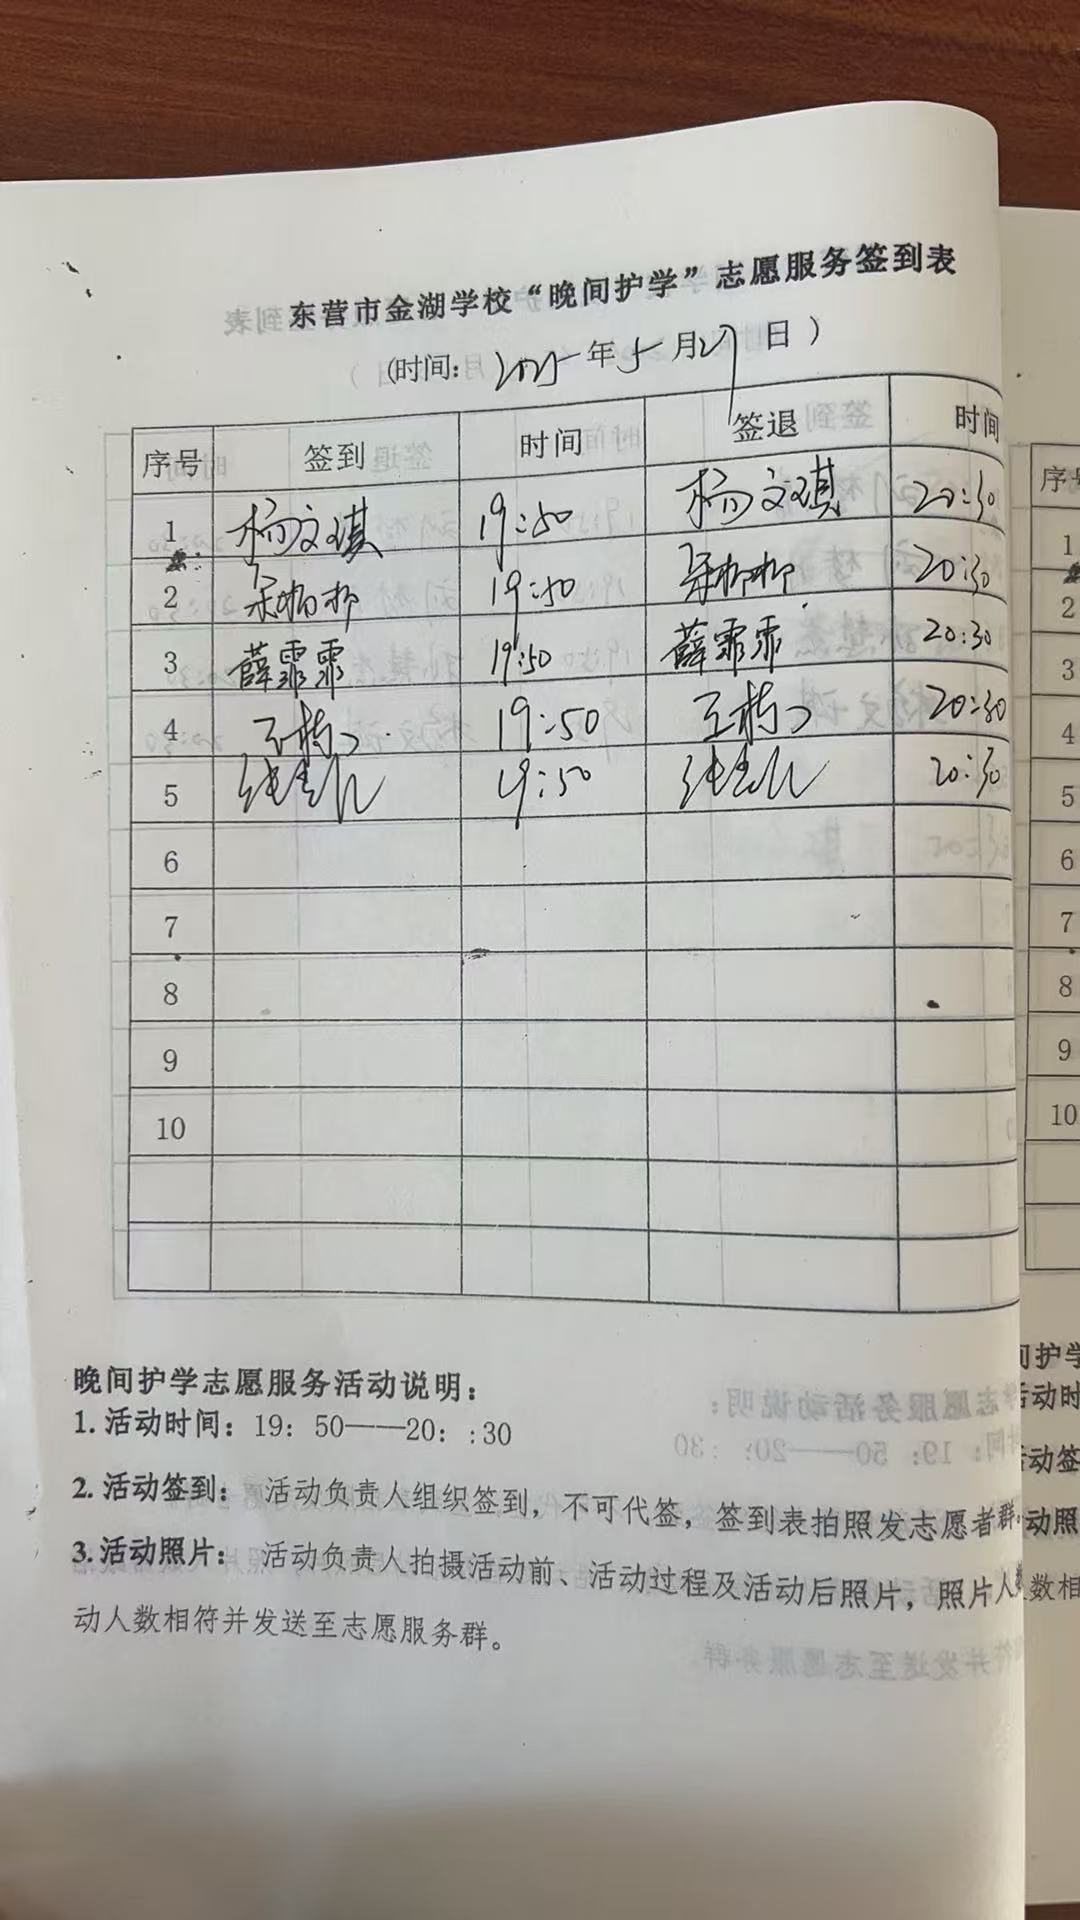 东营市金湖学校“晚间护学”志愿服务签到表
(时间: 2025年5月27日)
序号 签到 时间 签退 时间
1 杨文琪 19:50 杨文琪 20:30
2 19:50 20:30
3 薛霏霏 19:50 薛霏霏 20:30
4 19:50 20:30
5 19:50 20:30
6
7
8
9
10
晚间护学志愿服务活动说明:
1.活动时间: 19: 50——20: :30
2.活动签到: 活动负责人组织签到, 不可代签, 签到表拍照发志愿者群。
3.活动照片: 活动负责人拍摄活动前、活动过程及活动后照片, 照片人
动人数相符并发送至志愿服务群。
序号
1
2
3
4
5
6
7
8
9
10